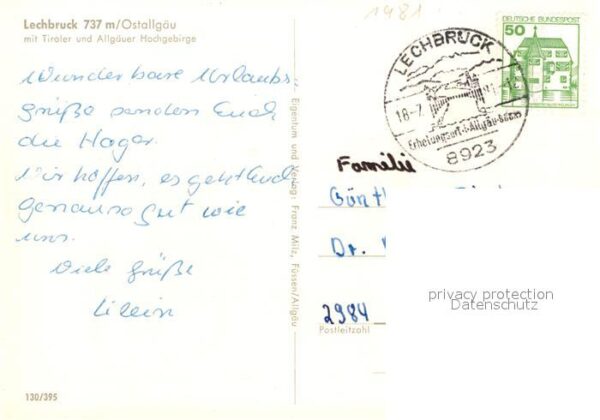 Lechbruck 737 m/Ostallgäu
mit Tiroler und Allgäuer Hochgebirge
1981
DEUTSCHE BUNDESPOST
50
LECHBRUCK
18-7
Erholungsort i. Allgäu
8923
Wunderbare Urlaubs-
grüße senden Euch
die Hager.
Wir hoffen, es geht Euch
genauso gut wie
uns.
Viele Grüße
Eigentum und Verlag: Franz Milz, Füssen/Allgäu
Familie
Günt
Dr.
2984
Postleitzahl
privacy protection
Datenschutz
130/395